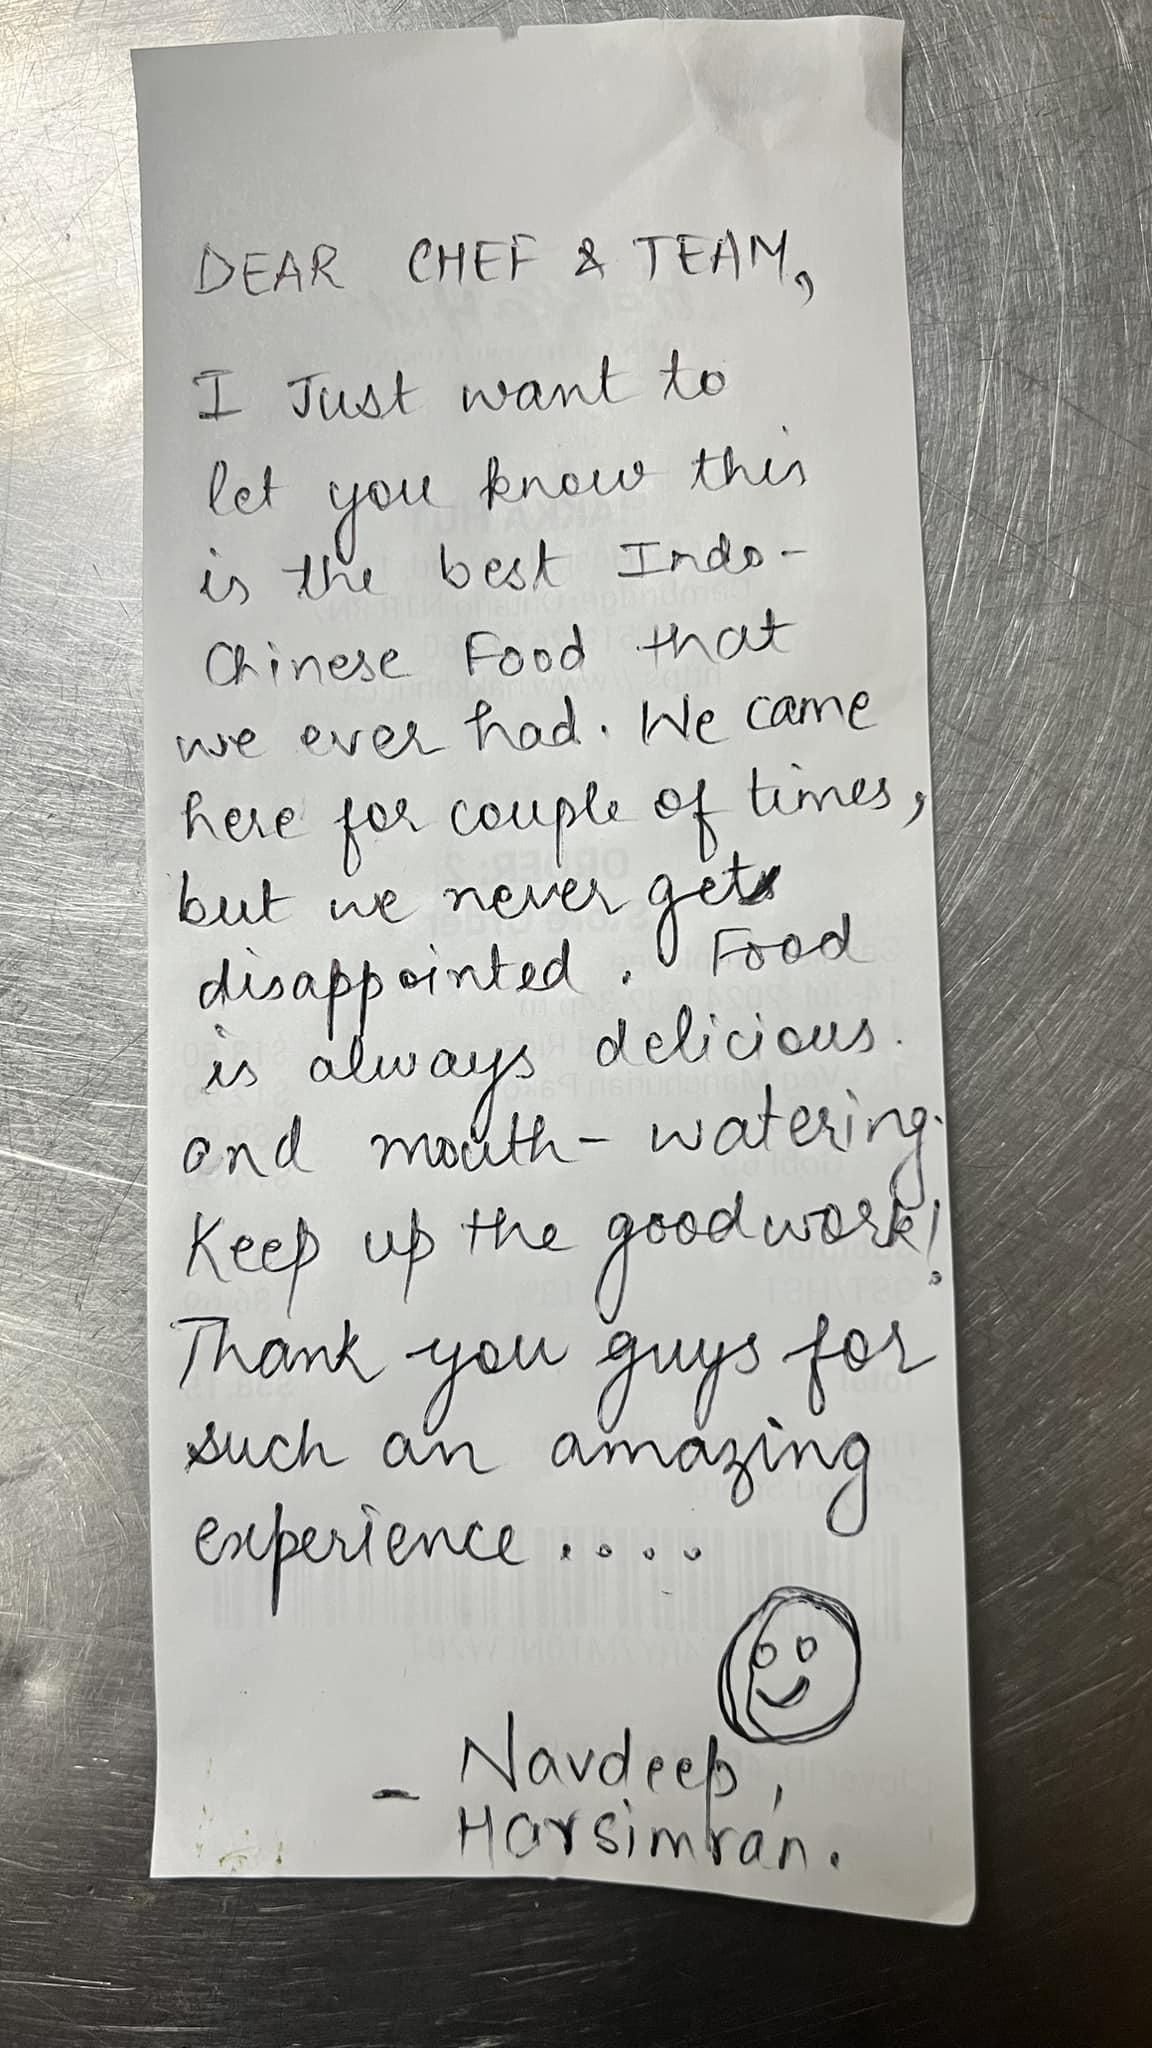 DEAR CHEF & TEAM,
I Just want to
let you know this
is the best Indo-
Chinese Food that
we ever had. We came
here for couple of times,
but we never get
disappointed. Food
is always delicious.
and mouth-watering.
Keep up the good work!
Thank you guys for
such an amazing
experience....
- Navdeep,
Harsimran.